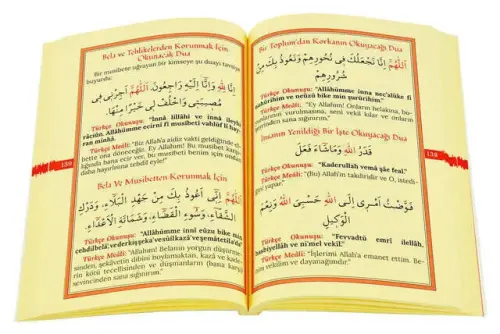 Bela ve Tehlikelerden Korunmak İçin
Okunacak Dua
Bir musibete uğrayan bir kimseye şu duayı tavsiye
buyurdu:
إِنَّا لِلّٰهِ وَإِنَّا إِلَيْهِ رَاجِعُونَ. اَللّٰهُمَّ آجِرْنِي فِي
مُصِيبَتِي وَاخْلُفْ لِي خَيْرًا مِنْهَا.
Türkçe Okunuşu: "İnnâ lillâhi ve innâ ileyhi
râciûn. Allâhümme ecirni fî musîbetî vahlüf lî hay-
ran minhâ.
Türkçe Meâli: "Biz Allah'a aidiz vakti geldiğinde el-
bette ona döneceğiz. Ey Allahım! Bu musibetin karşı-
lığında bana ecir ver, bu musibeti benim için ondan
daha hayırlısına tebdil eyle!"
Bela Ve Musibetten Korunmak İçin
اَللّٰهُمَّ إِنِّي أَعُوذُ بِكَ مِنْ جَهْدِ الْبَلَاءِ، وَدَرَكِ
الشَّقَاءِ، وَسُوءِ الْقَضَاءِ، وَشَمَاتَةِ الْأَعْدَاءِ.
Türkçe Okunuşu: "Allâhümme innî eûzu bike min
Türkçe Meâli: "Allahım! Belanın yorgun düşürme-
sinden, şekâvetin dibini boylamaktan, kazâ ve kade-
rin kötü tecellîsinden ve düşmanların (bana karşı)
sevincinden sana sığınırım."
159
Bir Toplum'dan Korkanın Okuyacağı Dua
اَللّٰهُمَّ إِنَّا نَجْعَلُكَ فِي نُحُورِهِمْ وَنَعُوذُ بِكَ مِنْ
شُرُورِهِمْ
Türkçe Okunuşu: "Allâhümme innâ nec'alüke fî
nuhûrihim ve neûzü bike min şurûrihim."
Türkçe Meâli: "Ey Allahım! Onların helakına, bo-
yunlarının vurulmasına, seni vekil kılar ve onların
şerlerinden sana sığınırız."
İnsanın Yenildiği Bir İşte Okuyacağı Dua
قَدَرُ اللّٰهِ وَمَاشَاءَ فَعَلَ
Türkçe Okunuşu: "Kaderullah vemâ şâe feal."
Türkçe Meâli: "(Bu) Allah'ın takdiridir ve O, istedi-
ğini yapar."
فَوَّضْتُ أَمْرِي إِلَى اللّٰهِ حَسْبِيَ اللّٰهُ وَنِعْمَ
الْوَكِيلُ
Türkçe Okunuşu: "Fevvadtü emrî ilellâh,
hasbiyellâh ve ni'mel vekîl."
Türkçe Meâli: "İşlerimi Allah'a emanet ettim. Be-
nim vekilim ve dayanağımdır."